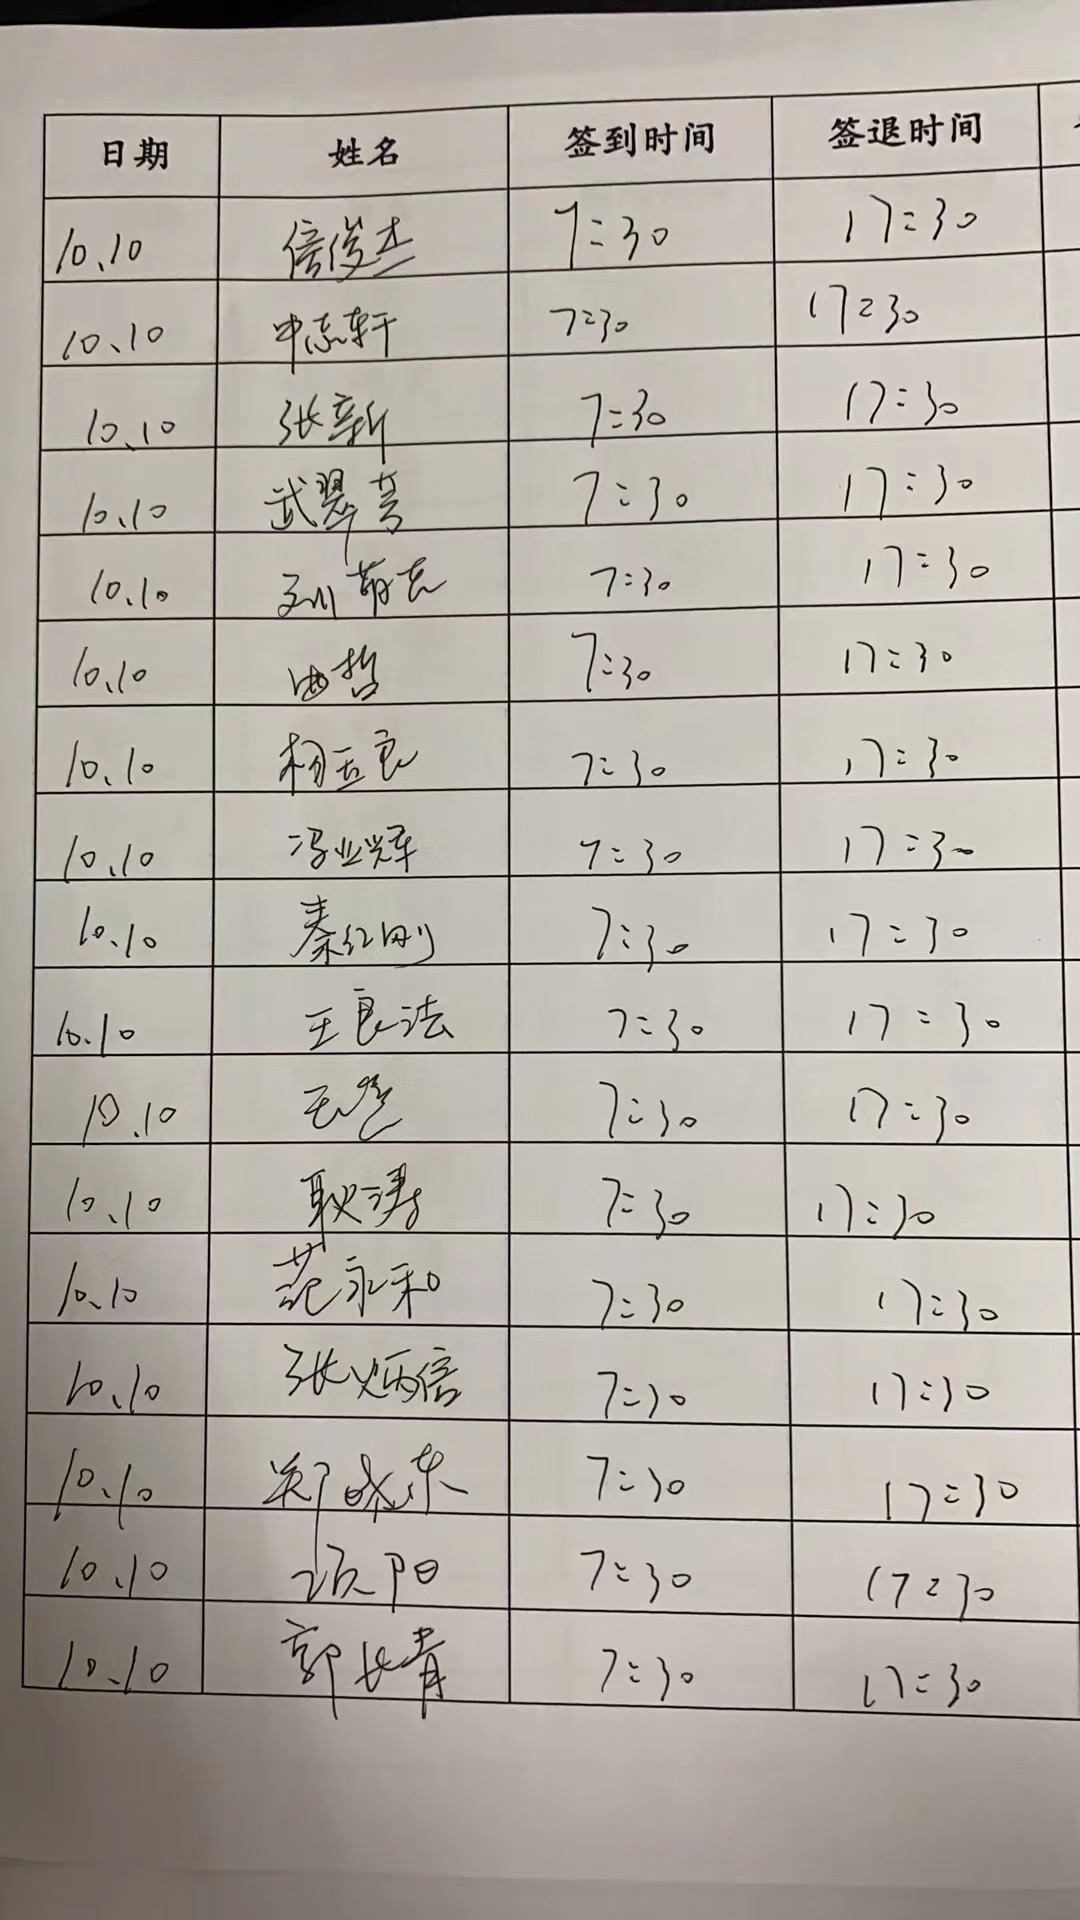 日期 姓名 签到时间 签退时间
10.10 俊杰 7:30 17:30
10.10 申志轩 7:30 17:30
10.10 张新 7:30 17:30
10.10 武翠芳 7:30 17:30
10.10 7:30 17:30
10.10 曲哲 7:30 17:30
10.10 杨玉良 7:30 17:30
10.10 冯业辉 7:30 17:30
10.10 秦红刚 7:30 17:30
10.10 王良法 7:30 17:30
10.10 7:30 17:30
10.10 耿涛 7:30 17:30
10.10 范永和 7:30 17:30
10.10 张炳信 7:30 17:30
10.10 郑晓东 7:30 17:30
10.10 阳 7:30 17:30
10.10 郭长青 7:30 17:30